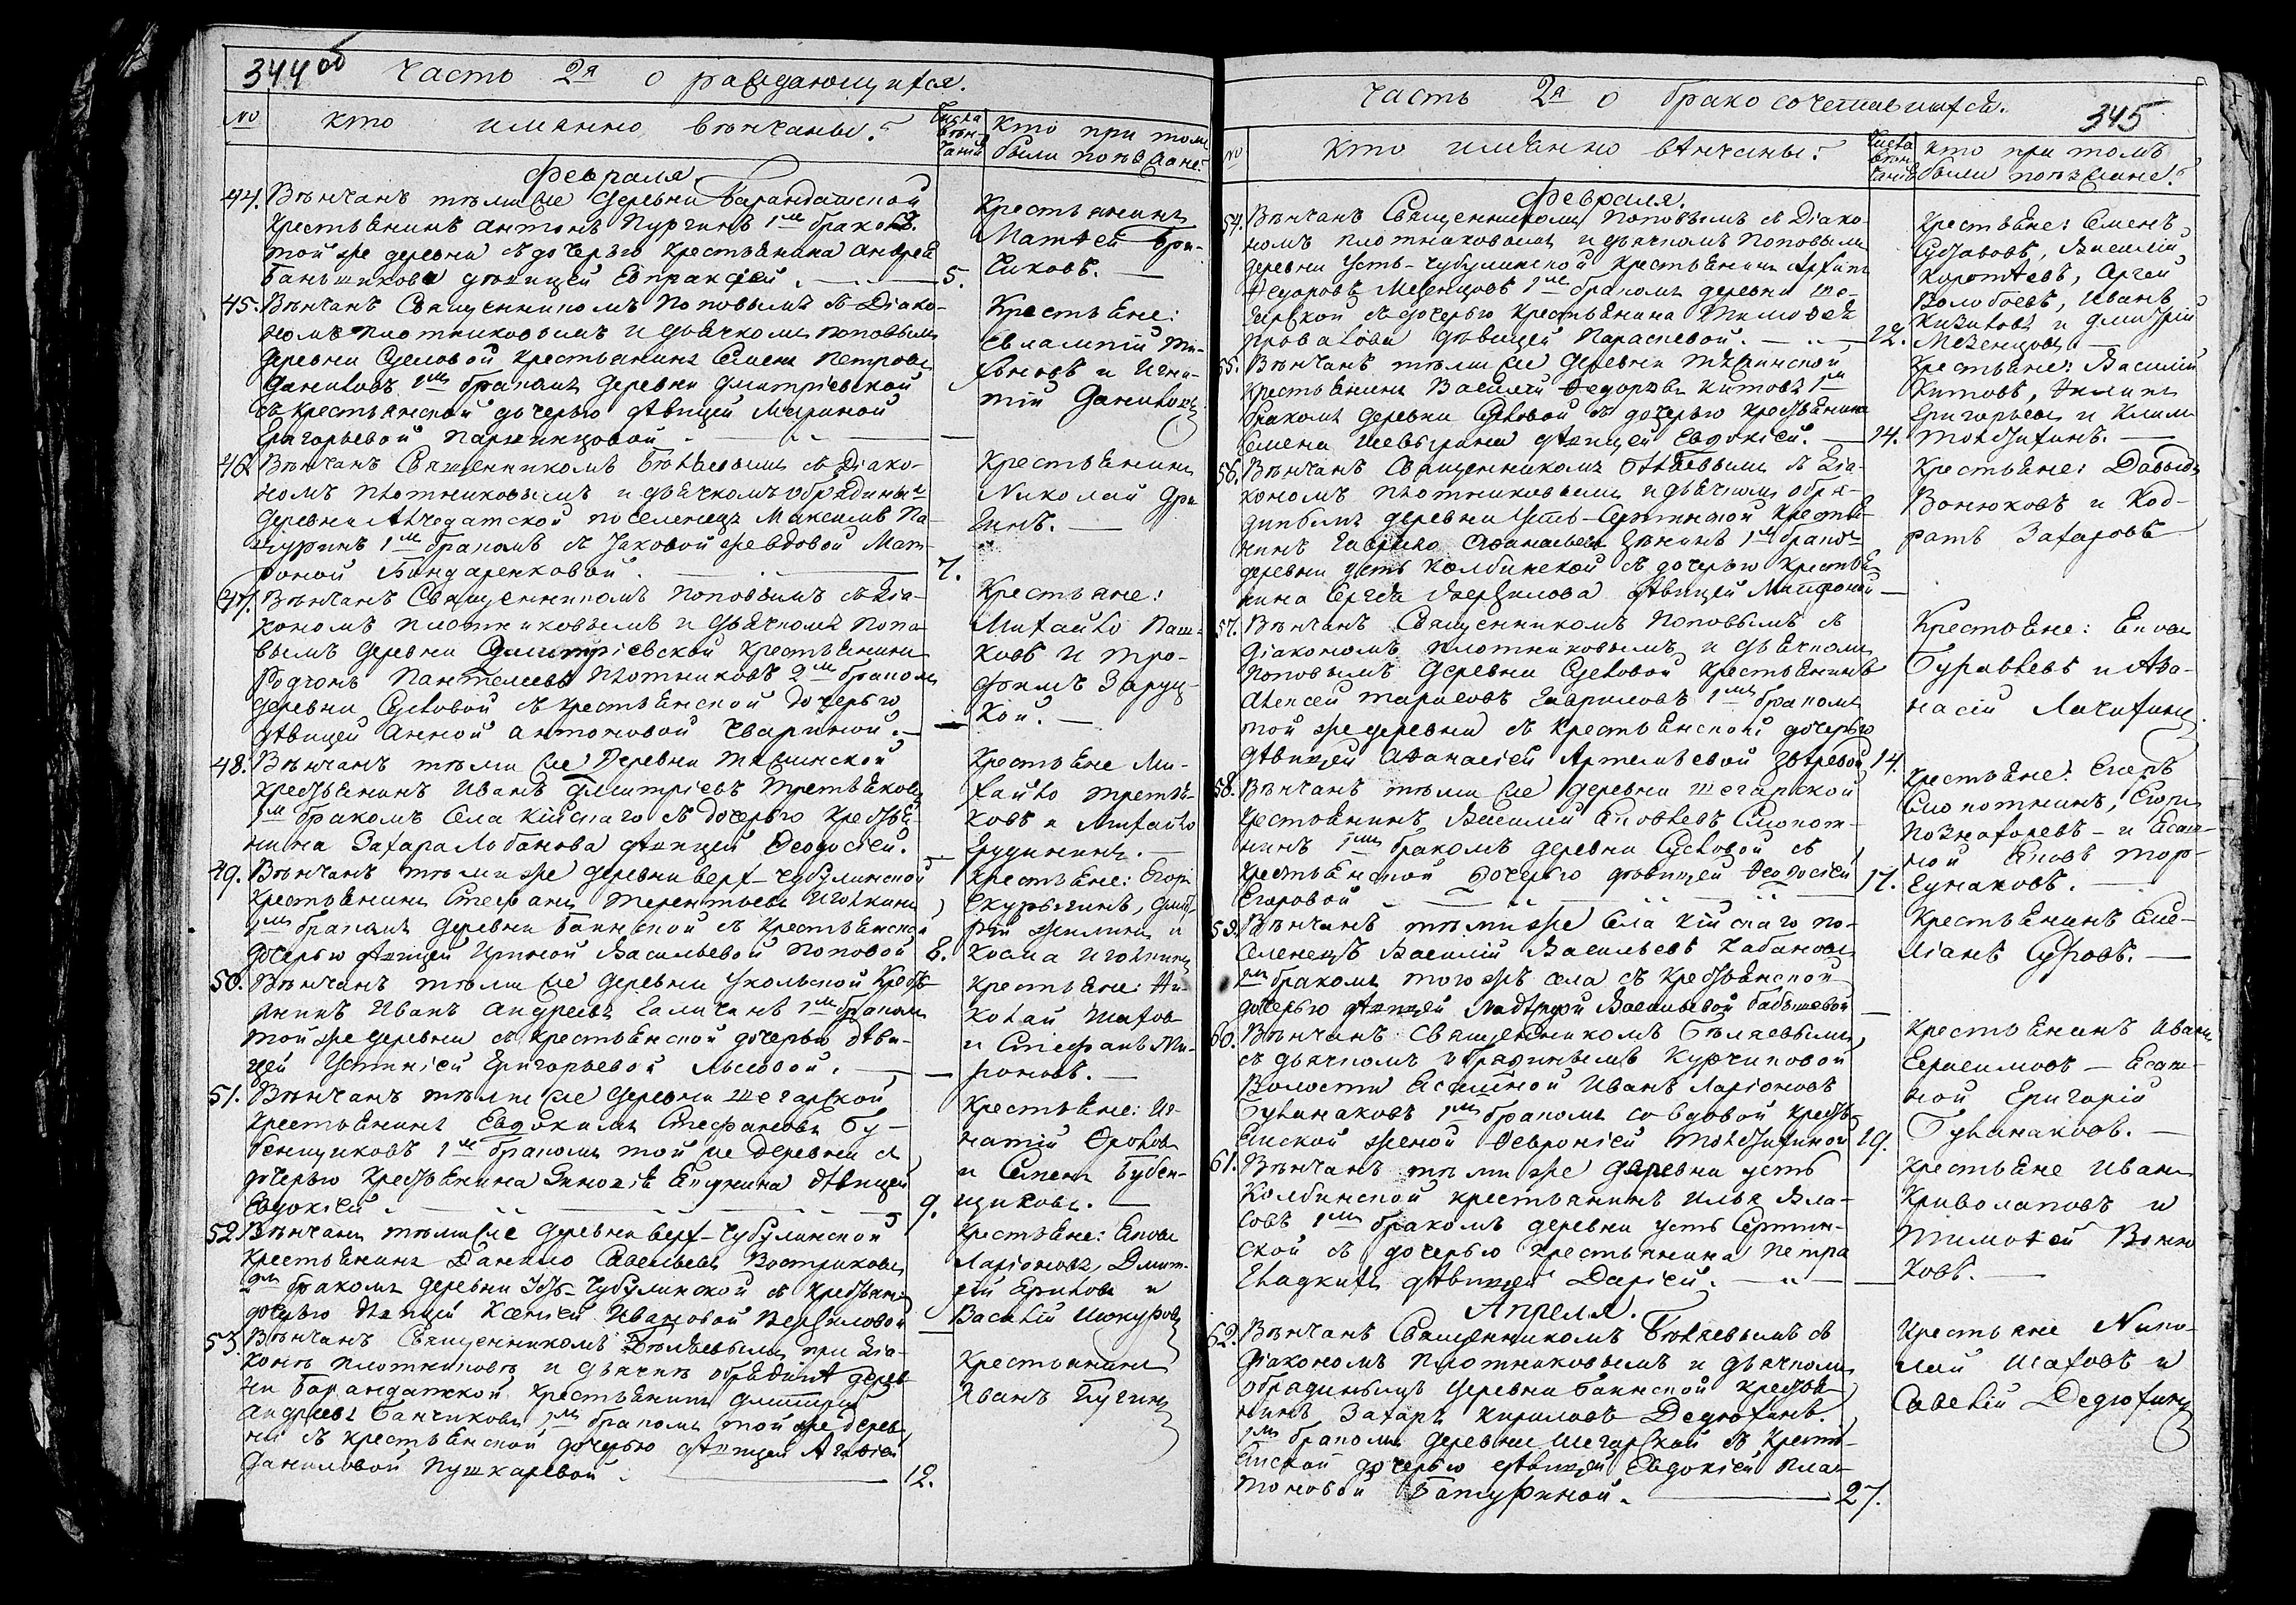 344 об
Часть 2я о раждающихся.
№ Кто имянно венчаны? Числа венчаний Кто при томъ были поезжане?
Февраля.
44. Венчанъ теми же деревни Барандатской
Крестьянинъ Антонъ Пургинъ 1мъ бракомъ
той же деревни съ дочерью крестьянина Андрея
Банщикова девицей Евпраксіей. 5.
Крестьянинъ
Матфей
45. Венчанъ Священникомъ Поповымъ съ Діако-
номъ Плотниковымъ и дьячкомъ Поповымъ
деревни Сусловой крестьянинъ Семенъ Петровъ
Даниловъ 1мъ бракомъ деревни Дмитріевской
съ крестьянской дочерью девицей Мариной
Григорьевой
Крестьяне:
Евлампій
и Игна-
тій Даниловъ
46. Венчанъ Священникомъ Беляевымъ съ Діако-
номъ Плотниковымъ и дьячкомъ Обрядинымъ
деревни Алчедатской поселенецъ Максимъ Па-
чуринъ 1мъ бракомъ съ таковой же вдовой Мат-
роной Бондаренковой. 7.
Крестьянинъ
Николай
47. Венчанъ Священникомъ Поповымъ съ Діа-
кономъ Плотниковымъ и дьячкомъ Попо-
вымъ деревни Дмитріевской крестьянинъ
Родіонъ Пантелеевъ Плотниковъ 2мъ бракомъ
деревни Сусловой съ крестьянской дочерью
девицей Анной Антоновой Чвариной.
Крестьяне:
Михайло Паш-
ковъ и Тро-
фимъ Заруц-
кой.
48. Венчанъ теми же деревни Тяжинской
крестьянинъ Иванъ Дмитріевъ Третьяковъ
1мъ бракомъ села Кійскаго съ дочерью крестья-
нина Захара Лобанова девицей Феодосіей.
Крестьяне Ми-
хайло Третья-
ковъ и Михайло
Грудининъ.
49. Венчанъ теми же деревни Верх-Чубулинской
крестьянинъ Стефанъ Терентьевъ Иголкинъ
1мъ бракомъ деревни Баинской съ крестьянской
дочерью девицей Ириной Васильевой Поповой 8.
Крестьяне: Егоръ
Скурыгинъ, Дмит-
рій Жилинъ и
Косма Иголкинъ
50. Венчанъ теми же деревни Ускольской Кресть-
янинъ Иванъ Андреевъ Галичанъ 1мъ бракомъ
той же деревни съ крестьянской дочерью деви-
цей Устиніей Григорьевой Лысовой.
Крестьяне: Ни-
колай Шаховъ
и Стефанъ Ми-
роновъ.
51. Венчанъ теми же деревни Шегарской
крестьянинъ Евдокимъ Стефановъ Бу-
бенщиковъ 1мъ бракомъ той же деревни съ
дочерью крестьянина девицей
Евдокіей 9.
Крестьяне: Иг-
натій Фроловъ
и Семенъ Бубен-
щиковъ.
52. Венчанъ теми же деревни Верх-Чубулинской
крестьянинъ Данило Савельевъ Востриковъ
2мъ бракомъ деревни Усть-Чубулинской съ крестьянской
дочерью девицей Ксеніей Ивановой Перфиловой
Крестьяне: Яковъ
Ларіоновъ, Дмит-
рій Ериховъ и
Василій
53. Венчанъ Священникомъ Беляевымъ при Діа-
коне Плотникове и дьячке Обрядине дерев-
ни Барандатской крестьянинъ Дмитрій
Андреевъ Банчиковъ 1мъ бракомъ той же дерев-
ни съ крестьянской дочерью девицей Агафіей
Даниловой Пушкаревой 12.
Крестьянинъ
Иванъ
Часть 2я о бракосочетавшихся.
345
№ Кто имянно венчаны? Числа венчаній Кто при томъ были поезжане?
Февраля.
54. Венчанъ Священникомъ Поповымъ съ Діако-
номъ Плотниковымъ и дьячкомъ Поповымъ
деревни Усть-Чубулинской крестьянинъ Архипъ
Федоровъ Мезенцовъ 1мъ бракомъ деревни Ше-
гарской съ дочерью крестьянина Тимофея
девицей Парасковой. 12.
Крестьяне: Семенъ
Василій
Коротаевъ, Сергей
Волобоевъ, Иванъ
и Дмитрій
Мезенцовъ
55. Венчанъ теми же деревни Тяжинской
крестьянинъ Василій Федоровъ Китовъ 1мъ
бракомъ деревни Сусловой съ дочерью крестьянина
Семена Шевырина девицей Евдокіей. 14.
Крестьяне: Василій
Китовъ, Филипъ
Григорьевъ и Климъ
56. Венчанъ Священникомъ Беляевымъ съ Діа-
кономъ Плотниковымъ и дьячкомъ Обря-
динымъ деревни Усть-Сертинской крестья-
нинъ Гаврило Афанасьевъ 1мъ бракомъ
деревни Усть Колбинской съ дочерью крестья-
нина Сергея девицей Матроной
Крестьяне: Давыдъ
Вонюковъ и Код-
ратъ Захаровъ
57. Венчанъ Священникомъ Поповымъ съ
Діакономъ Плотниковымъ и дьячкомъ
Поповымъ деревни Сусловой крестьянинъ
Алексей Тарасовъ Гавриловъ 1мъ бракомъ
той же деревни съ крестьянской дочерью
девицей Афанасіей Артемьевой 14.
Крестьяне: Яковъ
Буравлевъ и Афо-
насій Лачихинъ
58. Венчанъ теми же деревни Шегарской
крестьянинъ Василій Яковлевъ Сыпот-
нинъ 1мъ бракомъ деревни Сусловой съ
крестьянской дочерью девицей Феодосіей
Егоровой 17.
Крестьяне: Егоръ
Егоръ
Познахаревъ и Ясаш-
ной Яковъ Тор-
гунаковъ.
59. Венчанъ теми же села Кійскаго по-
селенецъ Василій Васильевъ Кабановъ
1мъ бракомъ того жъ села съ крестьянской
дочерью девицей Васильевой Бабышевой
Крестьянинъ Еме-
ліанъ Суховъ.
60. Венчанъ Священникомъ Беляевымъ
съ дьячкомъ Обрядинымъ Курчиковой
Волости Ясашной Иванъ Ларіоновъ
Буланаковъ 1мъ бракомъ со вдовой кресть-
янской женой Февроніей 19.
Крестьянинъ Иванъ
Герасимовъ — Ясаш-
ной Григорій
Буланаковъ.
61. Венчанъ теми же деревни Усть
Колбинской крестьянинъ Илья Вла-
совъ 1мъ бракомъ деревни Усть Сертин-
ской съ дочерью крестьянина Петра
Гладкихъ девицей Даріей.
Крестьяне Иванъ
Криволаповъ и
Тимофей Воню-
ковъ.
Апреля.
62. Венчанъ Священникомъ Беляевымъ съ
Діакономъ Плотниковымъ и дьячкомъ
Обрядинымъ деревни Баинской крестья-
нинъ Захаръ Кириловъ Дедюхинъ.
1мъ бракомъ деревни Шегарской съ кресть-
янской дочерью девицей Евдокіей Пла-
тоновой Батуриной. 27.
Крестьяне Нико-
лай Шаховъ и
Савелій Дедюхинъ